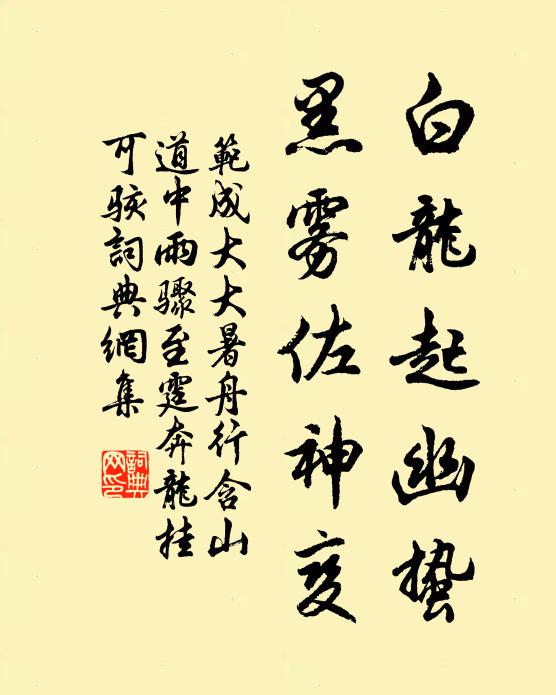 白龍起幽蟄
黑霧佐神变
範成大大暑舟行含山
道中雨驟至霆奔龍挂
可駭詞典網集
詞典
网印